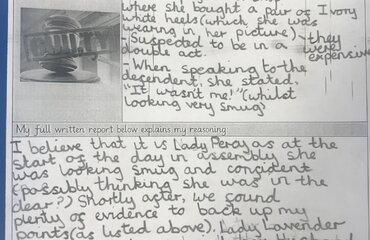 where she bought a pair of Ivory
white heels (which she was
wearing in, her picture) - they
were
expensive
- Suspected to be in a
double act.
- When speaking to the
defendent, she stated,
"It wasn't me!" (whilst
looking very smug)
GUILTY
My full written report below explains my reasoning
I believe that it is Lady Peray as at the
start of the day in assembly she
was looking smug and confident
(possibly thinking she was in the
clear?) Shortly after, we found
plenty of evidence to back up my
points (as listed above). Lady Lavender